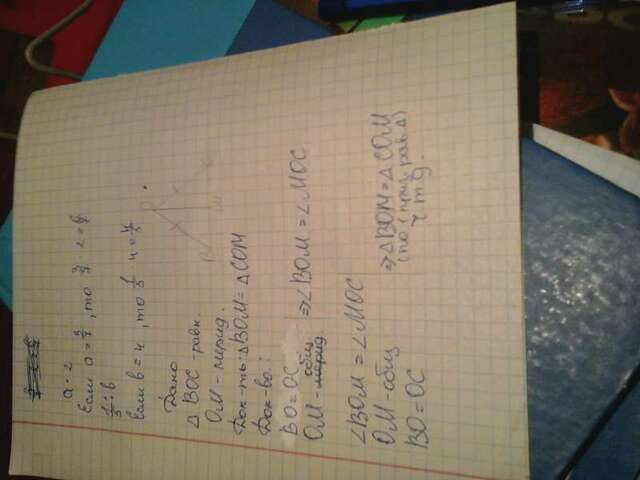 a · 2
Если a = 3/7, то 3/7 · 2 = 6/7
1/5 · b
Если b = 4, то 1/5 · 4 = 4/5
Дано
△ BOC - равн.
OM - мерид.
Док-ть: △BOM = △COM
Док-во:
BO = OC
OM - общ ⇒ ∠BOM = ∠MOC
∠BOM = ∠MOC
OM - общ ⇒ △BOM = △COM
(по 1 приз. рав. △)
BO = OC ч.т.д.
O
B M C